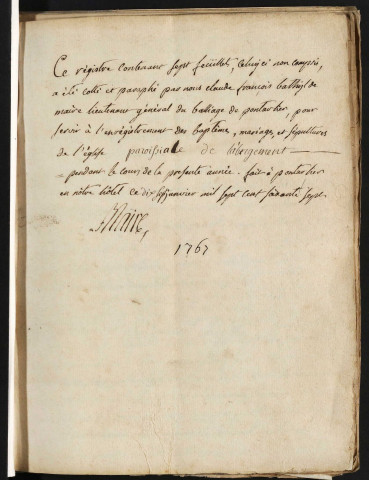 Ce registre contenant sept feuillets, celuy ci non compris,
a été cotté et paraphé par nous claude françois
maire lieutenant général du balliage de pontarlier, pour
servir à l'enregistrement des baptême, mariage, et sépultures
de l'église paroissiale de l'hbergement
pendant le cours de la presente année. fait à pontarlier
en nôtre hôtel ce janvier mil sept cent soixante sept.
Maire,
1767